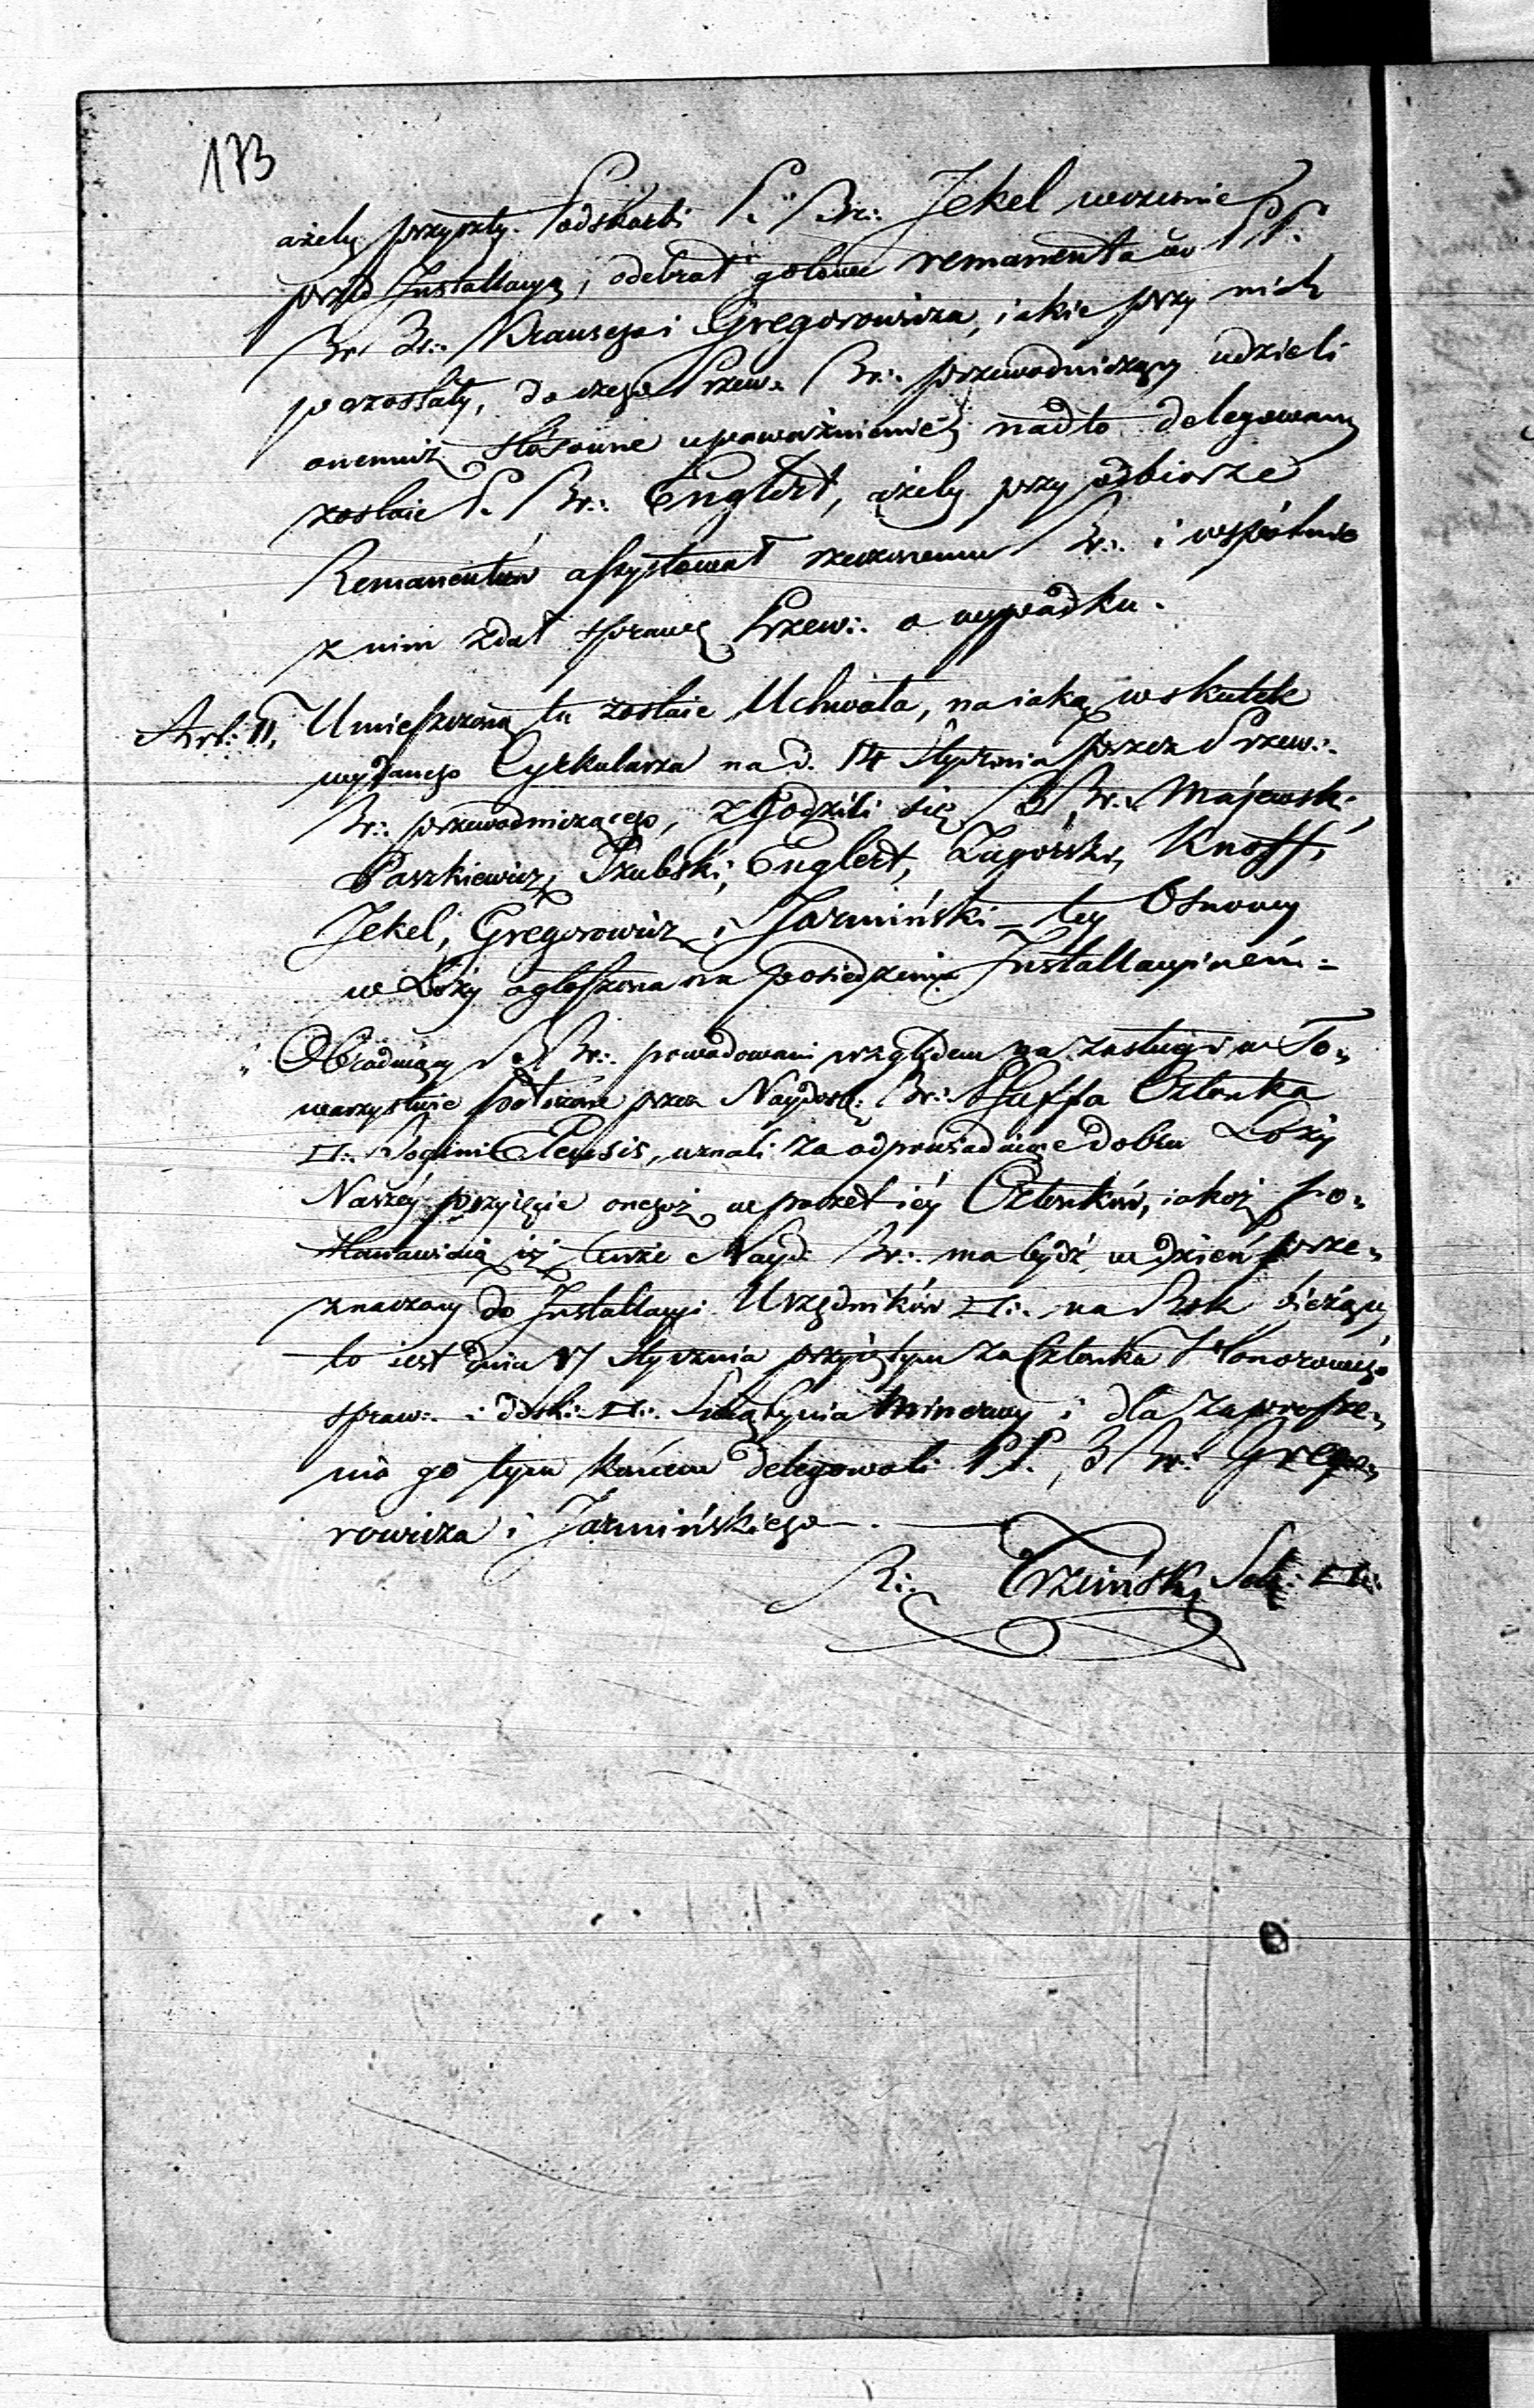 173
ażeby przyszły Podskarbi P. Br∴ Jekel wcześnie
przed Installacyą, odebrał gotowe remanenta od PP.
Br Br∴ Krausego i Gregorowicza, iakie przy nich
pozostały, do czego Przew. Br∴ przewodniczący udzieli
onemuż stósowne upoważnienie, nadto delegowany
zostaie P. Br∴ Englert, ażeby przy odbiorze
Remanentów assystował rzeczonemu Br∴ i wspólnie
z nim zdał sprawę Przew∴ o wypadku.
Art: II. Umieszczoną tu zostaie Uchwała, na iaką w skutek
wydanego Cyrkularza na d. 14 Stycznia przez Przew∴
Br∴ przewodniczącego, zgodzili się Br∴ Majewski,
Paszkiewicz, Englert, Zagórski, Knoff,
Jekel, Gregorowicz i Jarmiński tey Osnowy
w Loży ogłoszona na posiedzeniu Installacyiném =
„ Obraduiący Br∴ powodowani względem na zasługi w To„
warzystwie położone przez Naydosk: Br∴ Członka
Bogini Eleusis, uznali za odpowiednie dobru Loży
Naszéy przyięcie onegoż w poczet iéy Członków, iakoż po„
stanawiaią iż tenże Nayd: Br∴ ma bydź w dzień prze„
znaczony do Installacyi Urzędników □∴ na Rok bieżący
to iest dnia 17 Stycznia przyiętym za Członka Honorowego
spraw∴ i dosk∴ □∴ Swiątynia Minerwy i dla zaprosze„
nia go tym końcem delegowali PP. Br∴ Grego„
rowicza i Jarmińskiego.
Trzciński Sek: □∴